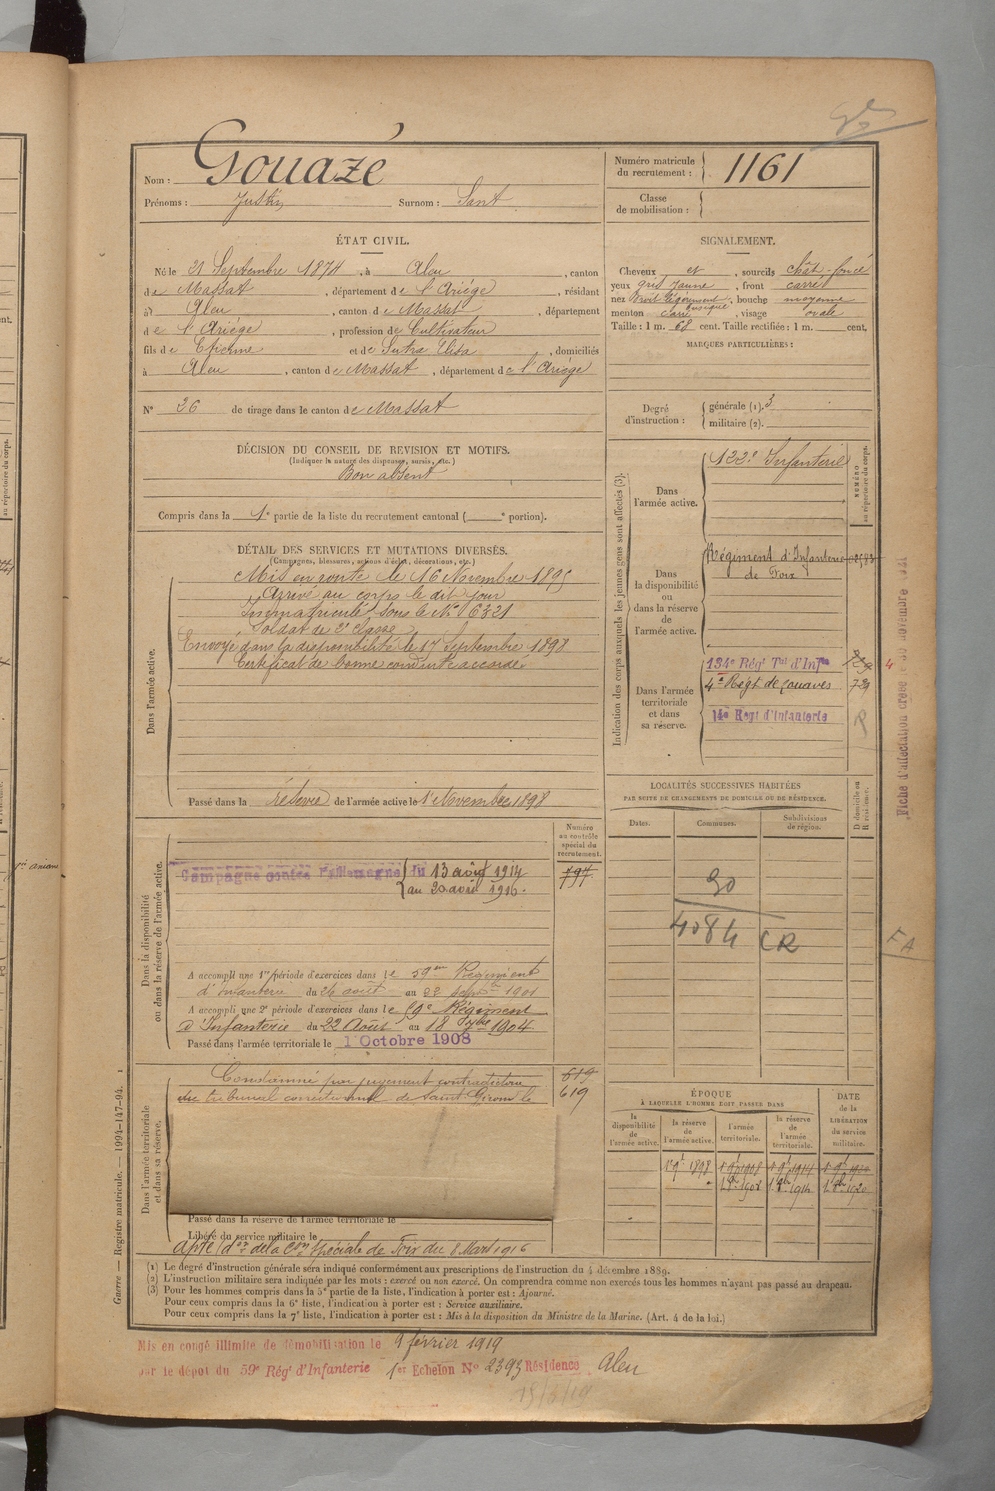 Nom : Gouazé
Prénoms : Justin Surnom : Sant
Numéro matricule du recrutement : 1161
Classe de mobilisation :
ÉTAT CIVIL.
Né le 21 Septembre 1874, à Aleu, canton
de Massat, département de l'Ariège, résidant
à Aleu, canton de Massat, département
de l'Ariège, profession de Cultivateur
fils de Etienne et de Sutra Elisa, domiciliés
à Aleu, canton de Massat, département de l'Ariège
N° 26 de tirage dans le canton de Massat
SIGNALEMENT.
Cheveux et sourcils chât-foncé
yeux gris jaune, front carré
nez droit légèrement busqué, bouche moyenne
menton carré, visage ovale
Taille : 1 m. 68 cent. Taille rectifiée : 1 m. cent.
MARQUES PARTICULIÈRES :
Degré d'instruction : générale (1). 3
militaire (2).
DÉCISION DU CONSEIL DE REVISION ET MOTIFS.
(Indiquer la nature des dispenses, sursis, etc.)
Bon absent
Compris dans la 1e partie de la liste du recrutement cantonal ( e portion).
DÉTAIL DES SERVICES ET MUTATIONS DIVERSES.
(Campagnes, blessures, actions d'éclat, décorations, etc.)
Dans l'armée active.
Mis en route le 16 Novembre 1895
Arrivé au corps le dit jour
Immatriculé sous le N° 6321
Soldat de 2e classe
Envoyé dans la disponibilité le 17 Septembre 1898
Certificat de bonne conduite accordé
Passé dans la réserve de l'armée active le 1er Novembre 1898
Indication des corps auxquels les jeunes gens sont affectés (3).
NUMÉRO au répertoire du corps.
Dans l'armée active.
122e Infanterie
Dans la disponibilité ou dans la réserve de l'armée active.
Régiment d'Infanterie
de Foix
Dans l'armée territoriale et dans sa réserve.
134e Rég' Tal d'Infie
4e Régt de Zouaves
14e Regt d'Infanterie
LOCALITÉS SUCCESSIVES HABITÉES
PAR SUITE DE CHANGEMENTS DE DOMICILE OU DE RÉSIDENCE.
Dates. Communes. Subdivisions de région. D domicile ou R résidence.
90
4084 CR
FA
Dans la disponibilité ou dans la réserve de l'armée active.
Numéro au contrôle spécial du recrutement.
797
Campagne contre l'Allemagne du 13 août 1914
au 20 avril 1916.
A accompli une 1re période d'exercices dans le 59me Régiment
d'Infanterie du 26 août au 22 septbre 1901
A accompli une 2e période d'exercices dans le 59e Régiment
d'Infanterie du 22 Août au 18 7bre 1904
Passé dans l'armée territoriale le 1 Octobre 1908
Dans l'armée territoriale et dans sa réserve.
Condamné par jugement contradictoire
du tribunal correctionnel de Saint-Girons le
619
619
Passé dans la réserve de l'armée territoriale le
Libéré du service militaire le
Apte don de la Con Spéciale de Foix du 8 Mars 1916
ÉPOQUE
À LAQUELLE L'HOMME DOIT PASSER DANS
la disponibilité de l'armée active.
la réserve de l'armée active.
l'armée territoriale.
la réserve de l'armée territoriale.
DATE de la LIBÉRATION du service militaire.
(1) Le degré d'instruction générale sera indiqué conformément aux prescriptions de l'instruction du 4 décembre 1889.
(2) L'instruction militaire sera indiquée par les mots : exercé ou non exercé. On comprendra comme non exercés tous les hommes n'ayant pas passé au drapeau.
(3) Pour les hommes compris dans la 5e partie de la liste, l'indication à porter est : Ajourné.
Pour ceux compris dans la 6e liste, l'indication à porter est : Service auxiliaire.
Pour ceux compris dans la 7e liste, l'indication à porter est : Mis à la disposition du Ministre de la Marine. (Art. 4 de la loi.)
Guerre — Registre matricule. — 1994-147-94.
Mis en congé illimité de démobilisation le 9 février 1919
par le dépôt du 59e Rég' d'Infanterie 1er Echelon N° 2393 Résidence Aleu